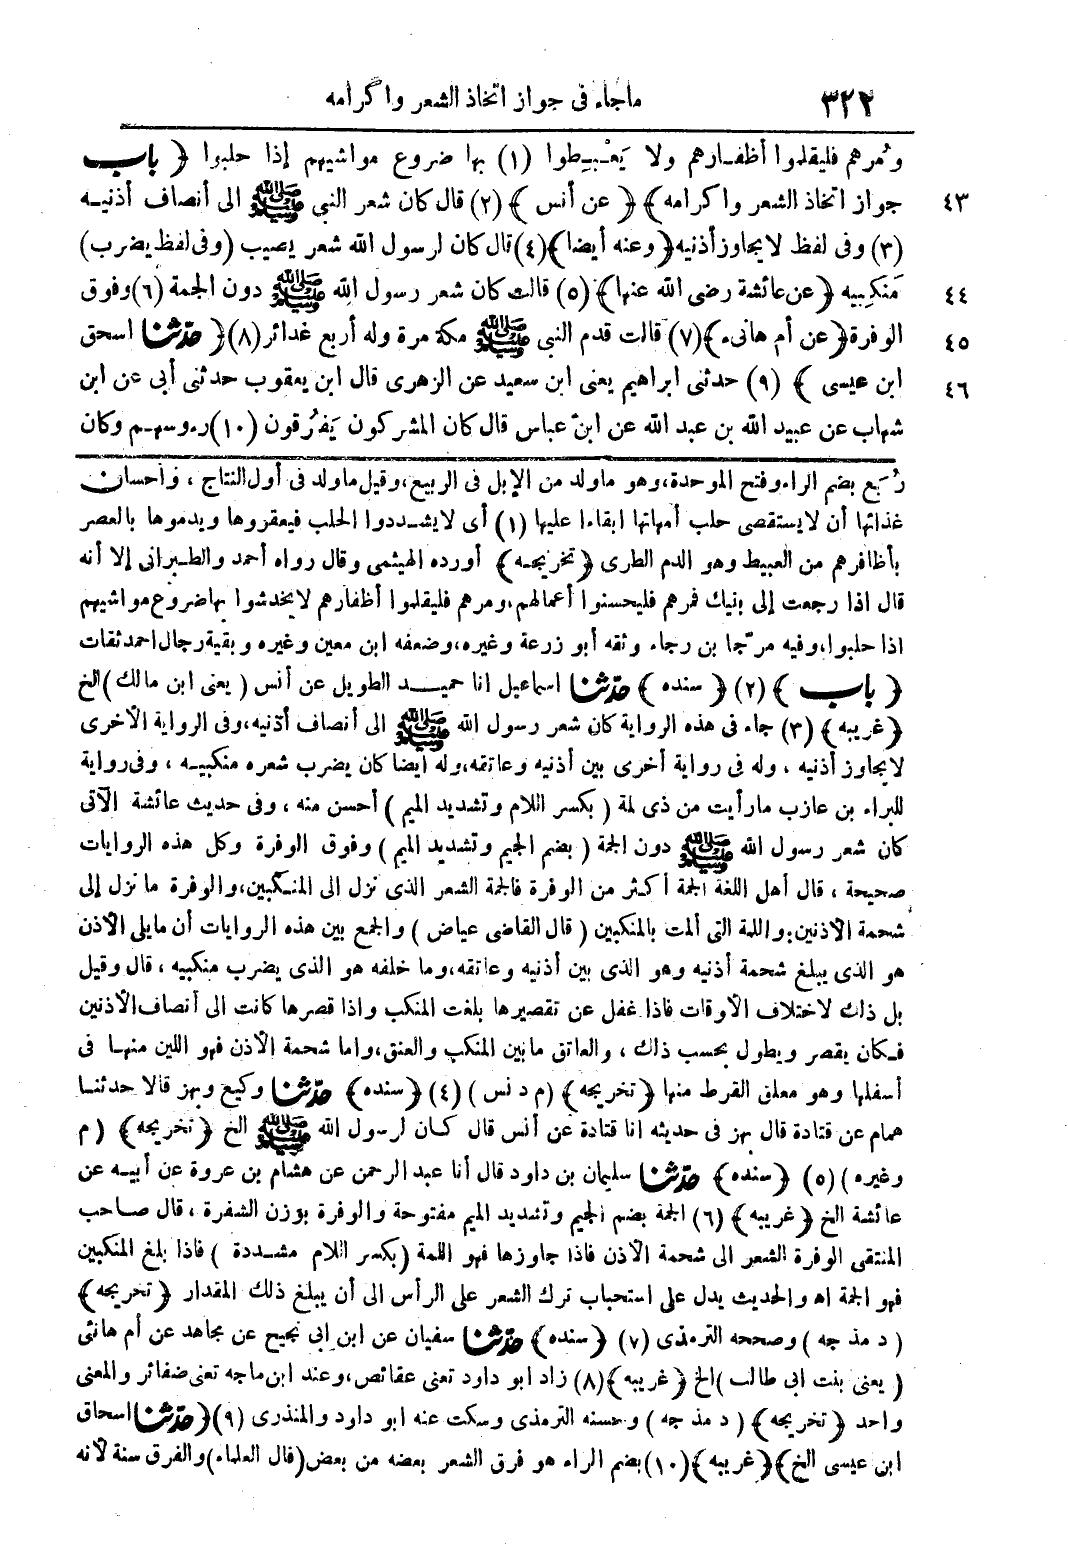 ٣٢٢ ماجاء فى جواز اتخاذ الشعر واكرامه
ومُرهم فليقلموا أظفارهم ولا يَعْبِطوا (١) بها ضروع مواشيهم إذا حلبوا ﴿ باب
٤٣ جواز اتخاذ الشعر واكرامه﴾ ﴿ عن أنس ﴾ (٢) قال كان شعر النبى ﷺ الى أنصاف أذنيه
(٣) وفى لفظ لايجاوز أذنيه ﴿ وعنه أيضا﴾ (٤) قال كان لرسول الله شعر يصيب (وفى لفظ يضرب)
٤٤ مَنكِبيه ﴿عن عائشة رضى الله عنها﴾ (٥) قالت كان شعر رسول الله ﷺ دون الجمة (٦) وفوق
٤٥ الوفرة ﴿ عن أم هانىء ﴾ (٧) قالت قدم النبى ﷺ مكة مرة وله أربع غدائر (٨) ﴿ حدّثنا اسحق
٤٦ ابن عيسى ﴾ (٩) حدثنى ابراهيم يعنى ابن سعيد عن الزهرى قال ابن يعقوب حدثنى أبى عن ابن
شهاب عن عبيد الله بن عبد الله عن ابن عباس قال كان المشركون يَفرُقون (١٠) رءوسهم وكان
رُبَع بضم الراء وفتح الموحدة، وهو ماولد من الإبل فى الربيع، وقيل ماولد فى أول النتاج ، وأحسان
غذائها أن لايستقصى حلب أمهاتها ابقاءا عليها (١) أى لايشددوا الحلب فيعقروها ويدموها بالعصر
بأظافرهم من العبيط وهو الدم الطرى ﴿ تخريجه ﴾ أورده الهيثمى وقال رواه أحمد والطبرانى إلا أنه
قال اذا رجعت إلى بنيك فمرهم فليحسنوا أعمالهم، ومرهم فليقلموا أظفارهم لايخدشوا بها ضروع مواشيهم
اذا حلبوا، وفيه مرجّا بن رجاء وثقه أبو زرعة وغيره، وضعفه ابن معين وغيره وبقية رجال احمد ثقات
﴿ باب ﴾ (٢) ﴿ سنده ﴾ حدّثنا اسماعيل انا حميد الطويل عن أنس ( يعنى ابن مالك ) الخ
﴿ غريبه ﴾ (٣) جاء فى هذه الرواية كان شعر رسول الله ﷺ الى أنصاف أذنيه، وفى الرواية الأخرى
لايجاوز أذنيه ، وله فى رواية أخرى بين أذنيه وعاتقه، وله أيضا كان يضرب شعره منكبيه ، وفى رواية
للبراء بن عازب مارأيت من ذى لمة ( بكسر اللام وتشديد الميم ) أحسن منه ، وفى حديث عائشة الآتى
كان شعر رسول الله ﷺ دون الجمة ( بضم الجيم وتشديد الميم ) وفوق الوفرة وكل هذه الروايات
صحيحة ، قال أهل اللغة الجمة أكثر من الوفرة فالجمة الشعر الذى نزل الى المنكبين، والوفرة ما نزل إلى
شحمة الأذنين، واللمة التى ألمت بالمنكبين ( قال القاضى عياض ) والجمع بين هذه الروايات أن مايلى الأذن
هو الذى يبلغ شحمة أذنيه وهو الذى بين أذنيه وعاتقه، وما خلفه هو الذى يضرب منكبيه ، قال وقيل
بل ذلك لاختلاف الأوقات فاذا غفل عن تقصيرها بلغت المنكب واذا قصرها كانت الى أنصاف الأذنين
فكان يقصر ويطول بحسب ذلك ، والعاتق مابين المنكب والعنق، واما شحمة الأذن فهو اللين منها فى
أسفلها وهو معلق القرط منها ﴿ تخريجه ﴾ (م د نس ) (٤) ﴿ سنده ﴾ حدّثنا وكيع وبهز قالا حدثنا
همام عن قتادة قال بهز فى حديثه انا قتادة عن أنس قال كان لرسول الله ﷺ الخ ﴿ تخريجه ﴾ (م
وغيره ) (٥) ﴿ سنده ﴾ حدّثنا سليمان بن داود قال أنا عبد الرحمن عن هشام بن عروة عن أبيه عن
عائشة الخ ﴿ غريبه ﴾ (٦) الجمة بضم الجيم وتشديد الميم مفتوحة والوفرة بوزن الشفرة ، قال صاحب
المنتقى الوفرة الشعر الى شحمة الأذن فاذا جاوزها فهو اللمة (بكسر اللام مشددة ) فاذا بلغ المنكبين
فهو الجمة اه والحديث يدل على استحباب ترك الشعر على الرأس الى أن يبلغ ذلك المقدار ﴿ تخريجه ﴾
( د مذ جه ) وصححه الترمذى (٧) ﴿ سنده ﴾ حدّثنا سفيان عن ابن ابى نجيح عن مجاهد عن أم هانئى
( يعنى بنت ابى طالب ) الخ ﴿ غريبه ﴾ (٨) زاد ابو داود تعنى عقائص، وعند ابن ماجه تعنى ضفائر والمعنى
واحد ﴿ تخريجه ﴾ ( د مذ جه ) وحسنه الترمذى وسكت عنه ابو داود والمنذرى (٩) ﴿ حدّثنا اسحاق
ابن عيسى الخ ﴾ ﴿ غريبه ﴾ (١٠) بضم الراء هو فرق الشعر بعضه من بعض (قال العلماء) والفرق سنة لأنه